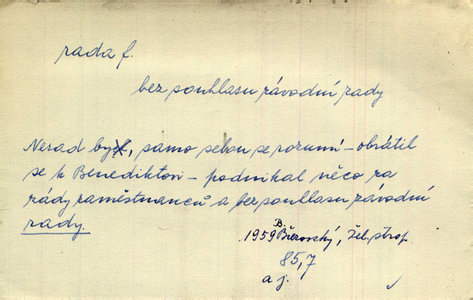 rada f.
bez souhlasu závodní rady
Nerad by, samo sebou se rozumí – obrátil
se k Benediktou – podnikal něco za
zády zaměstnanců a bez souhlasu závodní
rady
B.
1959 Březovský, Žel. strop
85,7
a j.